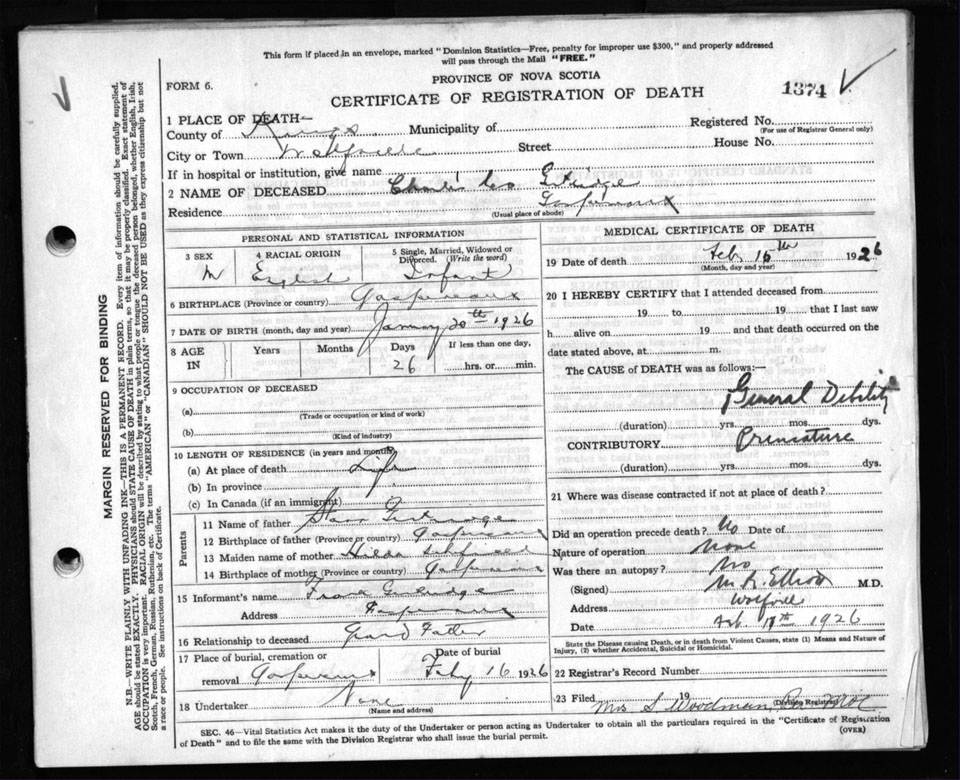 This form if placed in an envelope, marked "Dominion Statistics—Free, penalty for improper use $300," and properly addressed
will pass through the Mail "FREE."
PROVINCE OF NOVA SCOTIA
FORM 6.
CERTIFICATE OF REGISTRATION OF DEATH
1374
1 PLACE OF DEATH—
County of Kings Municipality of Registered No.
(For use of Registrar General only)
City or Town Wolfville Street House No.
If in hospital or institution, give name
2 NAME OF DECEASED Charles Leo
Residence Gaspereaux
(Usual place of abode)
PERSONAL AND STATISTICAL INFORMATION
3 SEX 4 RACIAL ORIGIN 5 Single, Married, Widowed or Divorced. (Write the word)
M English Infant
6 BIRTHPLACE (Province or country) Gaspereaux
7 DATE OF BIRTH (month, day and year) January 20th 1926
8 AGE IN Years Months Days If less than one day,
26 hrs. or min.
9 OCCUPATION OF DECEASED
(a)
(Trade or occupation or kind of work)
(b)
(Kind of industry)
10 LENGTH OF RESIDENCE (in years and months)
(a) At place of death Life
(b) In province
(c) In Canada (if an immigrant)
Parents
11 Name of father Starr
12 Birthplace of father (Province or country) Gaspereaux
13 Maiden name of mother Hilda
14 Birthplace of mother (Province or country) Gaspereaux
15 Informant's name Frank
Address Gaspereaux
16 Relationship to deceased Grand Father
17 Place of burial, cremation or removal Gaspereaux Date of burial Feby 16 1926
18 Undertaker None
(Name and address)
MEDICAL CERTIFICATE OF DEATH
19 Date of death Feb. 15th 1926
(Month, day and year)
20 I HEREBY CERTIFY that I attended deceased from
19 to 19 that I last saw
h alive on 19 and that death occurred on the
date stated above, at m.
The CAUSE of DEATH was as follows:—
General Debility
(duration) yrs. mos. dys.
CONTRIBUTORY Premature
(duration) yrs. mos. dys.
21 Where was disease contracted if not at place of death?
Did an operation precede death? No Date of
Nature of operation None
Was there an autopsy? No
(Signed) M. R. Elliott M.D.
Address Wolfville
Date Feb. 17th 1926
State the Disease causing Death, or in death from Violent Causes, state (1) Means and Nature of
Injury, (2) whether Accidental, Suicidal or Homicidal.
22 Registrar's Record Number
23 Filed 19
Mrs S. Woodman
(Division Registrar)
SEC. 46—Vital Statistics Act makes it the duty of the Undertaker or person acting as Undertaker to obtain all the particulars required in the "Certificate of Registration
of Death" and to file the same with the Division Registrar who shall issue the burial permit.
(OVER)
MARGIN RESERVED FOR BINDING
N.B.—WRITE PLAINLY WITH UNFADING INK—THIS IS A PERMANENT RECORD. Every item of information should be carefully supplied.
AGE should be stated EXACTLY. PHYSICIANS should STATE CAUSE OF DEATH in plain terms, so that it may be properly classified. Exact statement of
OCCUPATION is very important. RACIAL ORIGIN will be described by stating to what people or tongue the deceased person belonged, whether English, Irish,
Scotch, French, German, Russian, Ruthenian, etc. The terms "AMERICAN" or "CANADIAN" SHOULD NOT BE USED as they express citizenship but not
a race or people. See instructions on back of Certificate.